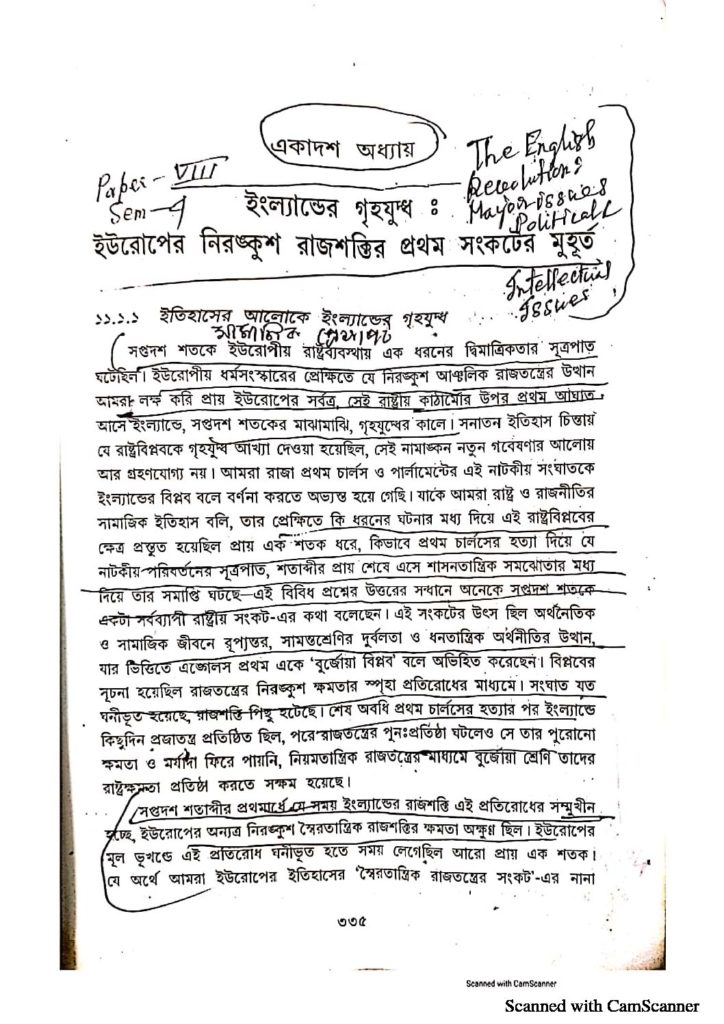 একাদশ অধ্যায়
The English
Revolution:
Major issues
Political
Paper - VIII
Sem - 4
ইংল্যান্ডের গৃহযুদ্ধ :
ইউরোপের নিরঙ্কুশ রাজশক্তির প্রথম সংকটের মুহূর্ত
Intellectual
Issues
১১.১.১ ইতিহাসের আলোকে ইংল্যান্ডের গৃহযুদ্ধ
সামাজিক প্রেক্ষাপট
সপ্তদশ শতকে ইউরোপীয় রাষ্ট্রব্যবস্থায় এক ধরনের দ্বিমাত্রিকতার সূত্রপাত
ঘটেছিল। ইউরোপীয় ধর্মসংস্কারের প্রেক্ষিতে যে নিরঙ্কুশ আঞ্চলিক রাজতন্ত্রের উত্থান
আমরা লক্ষ করি প্রায় ইউরোপের সর্বত্র, সেই রাষ্ট্রীয় কাঠামোর উপর প্রথম আঘাত
আসে ইংল্যান্ডে, সপ্তদশ শতকের মাঝামাঝি, গৃহযুদ্ধের কালে। সনাতন ইতিহাস চিন্তায়
যে রাষ্ট্রবিপ্লবকে গৃহযুদ্ধ আখ্যা দেওয়া হয়েছিল, সেই নামাঙ্কন নতুন গবেষণার আলোয়
আর গ্রহণযোগ্য নয়। আমরা রাজা প্রথম চার্লস ও পার্লামেন্টের এই নাটকীয় সংঘাতকে
ইংল্যান্ডের বিপ্লব বলে বর্ণনা করতে অভ্যস্ত হয়ে গেছি। যাকে আমরা রাষ্ট্র ও রাজনীতির
সামাজিক ইতিহাস বলি, তার প্রেক্ষিতে কি ধরনের ঘটনার মধ্য দিয়ে এই রাষ্ট্রবিপ্লবের
ক্ষেত্র প্রস্তুত হয়েছিল প্রায় এক শতক ধরে, কিভাবে প্রথম চার্লসের হত্যা দিয়ে যে
নাটকীয় পরিবর্তনের সূত্রপাত, শতাব্দীর প্রায় শেষে এসে শাসনতান্ত্রিক সমঝোতার মধ্য
দিয়ে তার সমাপ্তি ঘটছে—এই বিবিধ প্রশ্নের উত্তরের সন্ধানে অনেকে সপ্তদশ শতকে
একটা সর্বব্যাপী রাষ্ট্রীয় সংকট-এর কথা বলেছেন। এই সংকটের উৎস ছিল অর্থনৈতিক
ও সামাজিক জীবনে রূপান্তর, সামন্তশ্রেণির দুর্বলতা ও ধনতান্ত্রিক অর্থনীতির উত্থান,
যার ভিত্তিতে এঙ্গেলস প্রথম একে ‘বুর্জোয়া বিপ্লব’ বলে অভিহিত করেছেন। বিপ্লবের
সূচনা হয়েছিল রাজতন্ত্রের নিরঙ্কুশ ক্ষমতার স্পৃহা প্রতিরোধের মাধ্যমে। সংঘাত যত
ঘনীভূত হয়েছে, রাজশক্তি পিছু হটেছে। শেষ অবধি প্রথম চার্লসের হত্যার পর ইংল্যান্ডে
কিছুদিন প্রজাতন্ত্র প্রতিষ্ঠিত ছিল, পরে রাজতন্ত্রের পুনঃপ্রতিষ্ঠা ঘটলেও সে তার পুরোনো
ক্ষমতা ও মর্যাদা ফিরে পায়নি, নিয়মতান্ত্রিক রাজতন্ত্রের মাধ্যমে বুর্জোয়া শ্রেণি তাদের
রাষ্ট্রক্ষমতা প্রতিষ্ঠা করতে সক্ষম হয়েছে।
সপ্তদশ শতাব্দীর প্রথমার্ধে যে সময় ইংল্যান্ডের রাজশক্তি এই প্রতিরোধের সম্মুখীন
হচ্ছে, ইউরোপের অন্যত্র নিরঙ্কুশ স্বৈরতান্ত্রিক রাজশক্তির ক্ষমতা অক্ষুণ্ণ ছিল। ইউরোপের
মূল ভূখণ্ডে এই প্রতিরোধ ঘনীভূত হতে সময় লেগেছিল আরো প্রায় এক শতক।
যে অর্থে আমরা ইউরোপের ইতিহাসের ‘স্বৈরতান্ত্রিক রাজতন্ত্রের সংকট’-এর নানা
৩৩৫
Scanned with CamScanner
Scanned with CamScanner